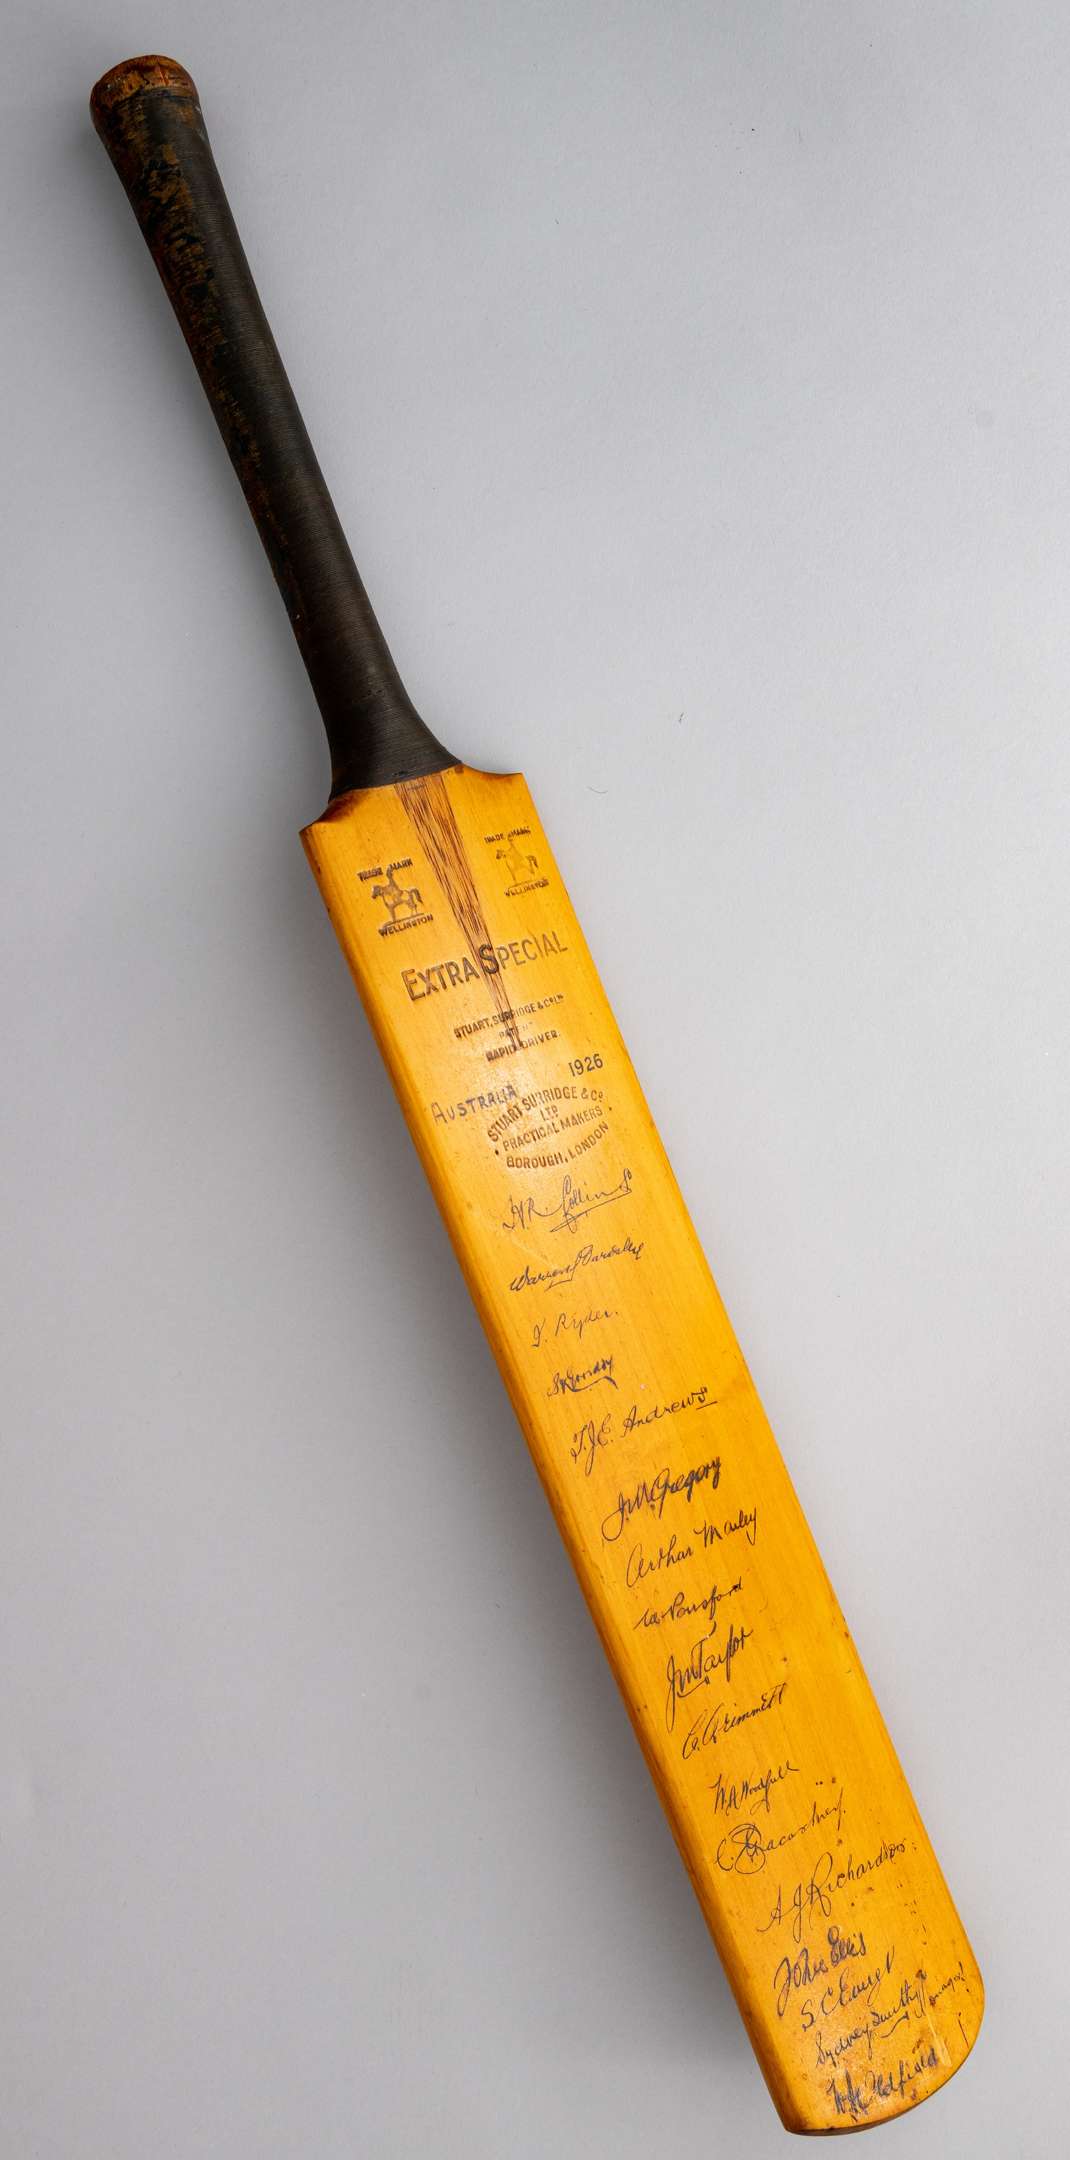 TRADE MARK
WELLINGTON
TRADE MARK
WELLINGTON
EXTRA SPECIAL
STUART, SURRIDGE & Co LTD
PATENT
RAPID DRIVER.
1926
AUSTRALIA
STUART SURRIDGE & Co
LTD
PRACTICAL MAKERS
BOROUGH, LONDON
H.R. Collins
Warren Bardsley
J. Ryder.
T.J.E. Andrews
J.M. Gregory
Arthur Mailey
W Ponsford
J.M Taylor
C. Grimmett
W.A Woodfull
C. G Macartney.
A J Richardson
John Ellis
S C Everett
Sydney Smith Jr
manager
W A Oldfield